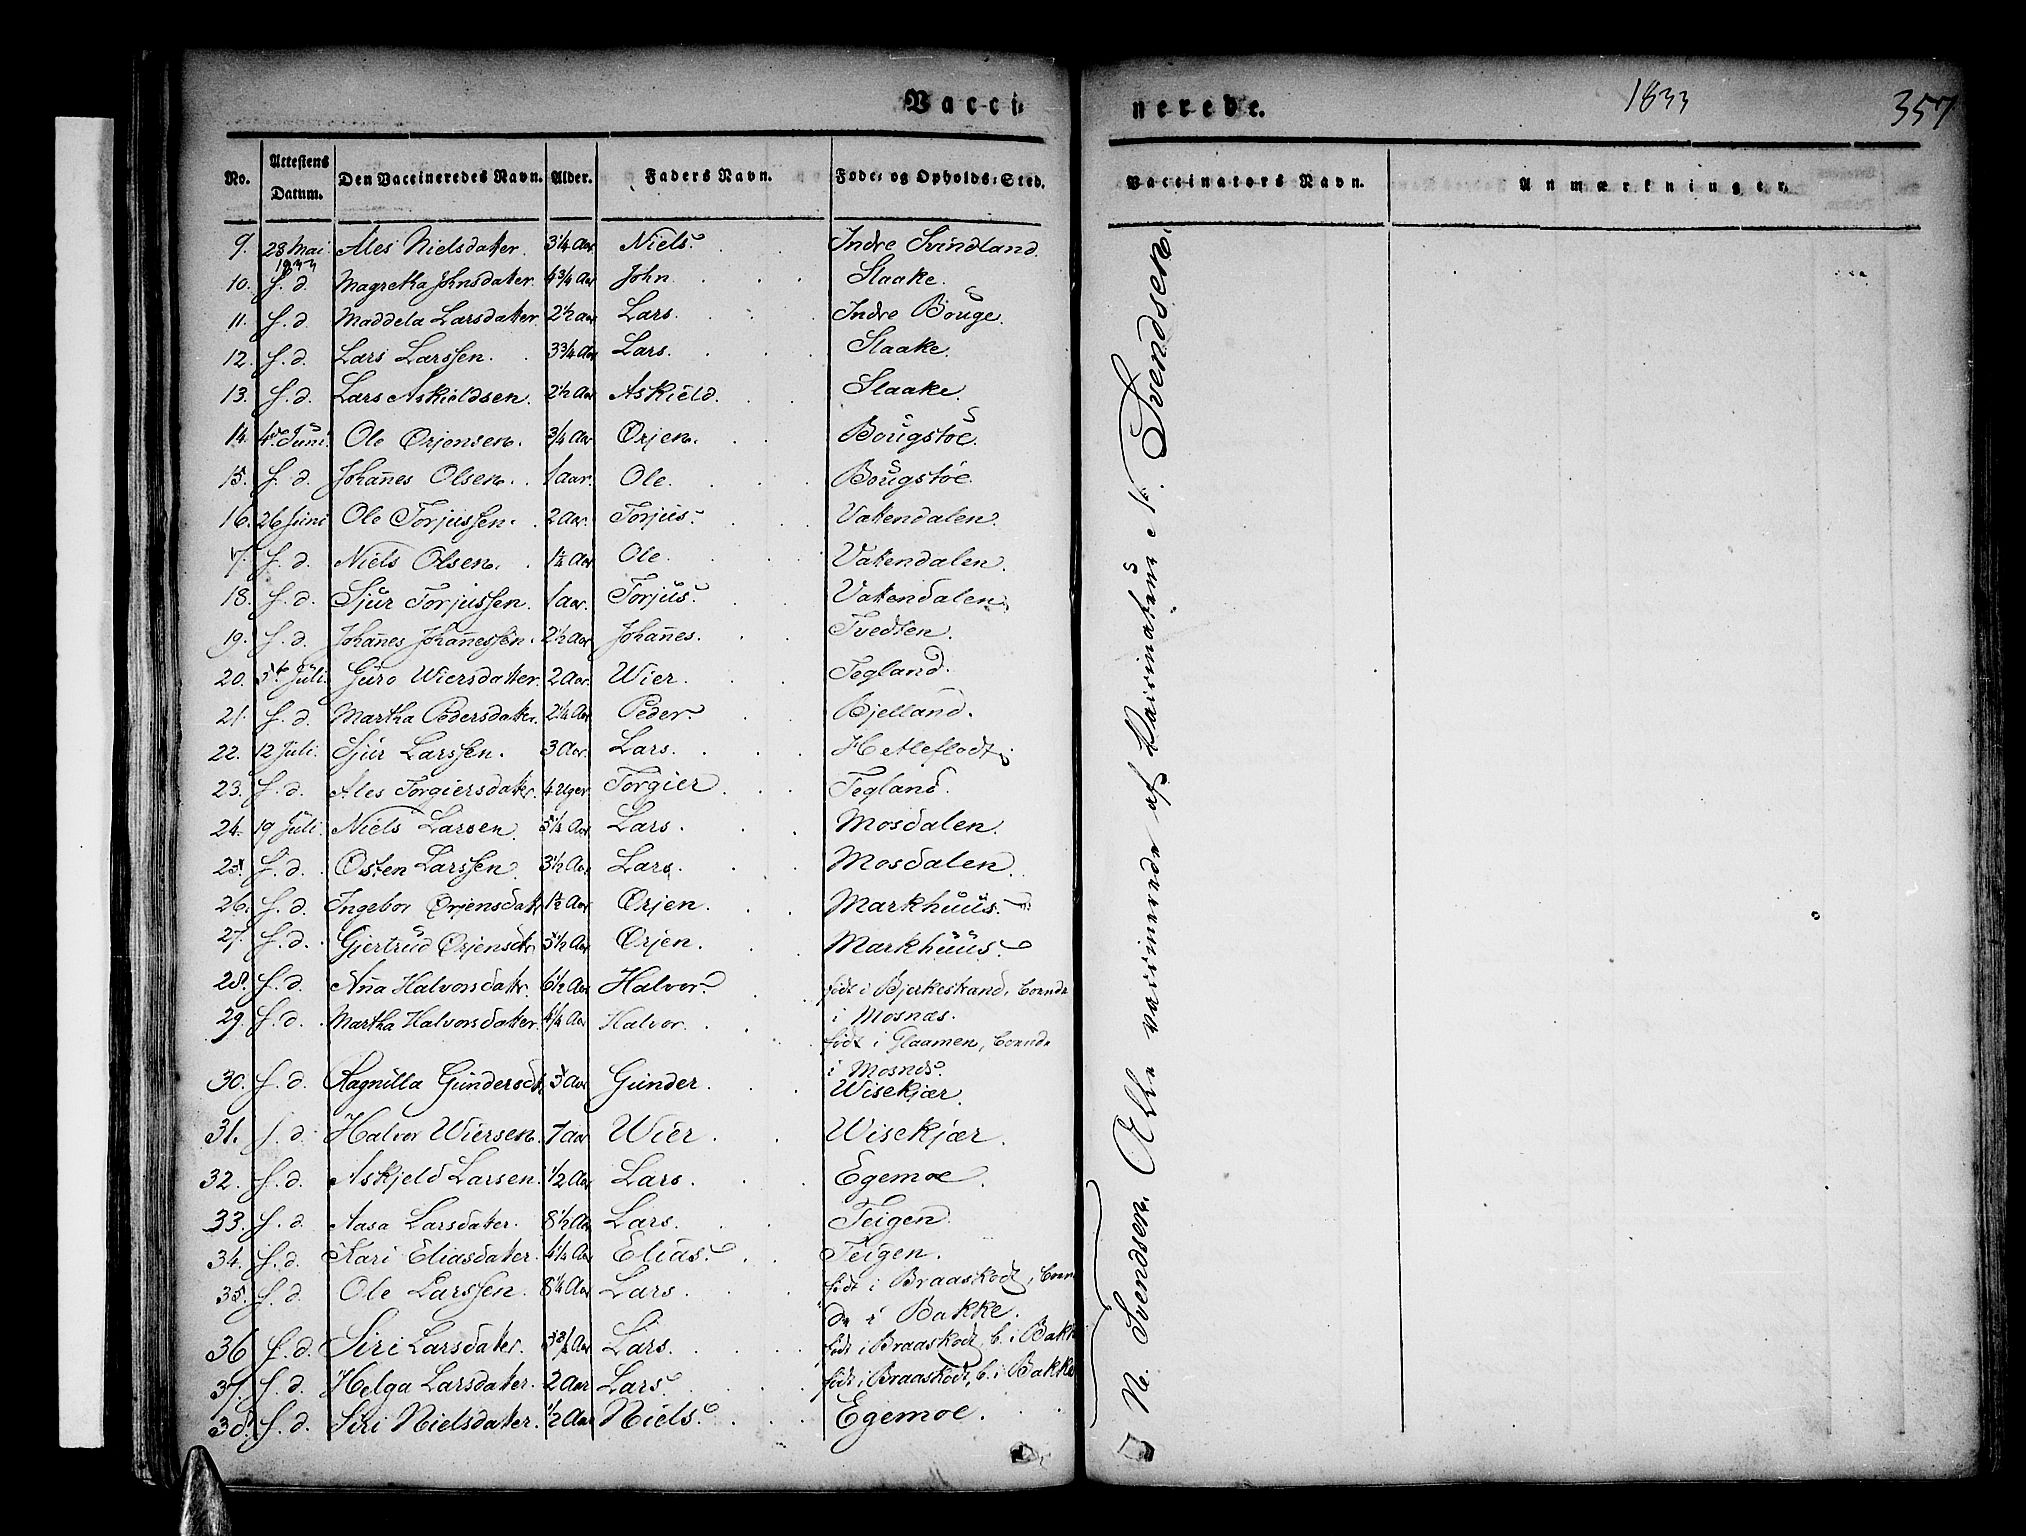 Vacci-
nerede.
1833
357
No. Attestens Datum. Den Vaccineredes Navn. Alder. Faders Navn. Føde- og Opholds-Sted.
Vaccinators Navn. Anmærkninger.
9. 28 Mai 1833 Ales Nielsdatter. 3 1/4 Aar Niels. Indre Svindland.
10. s. d. Magretha Johnsdatter. 4 3/4 Aar John. Slaake.
11. s. d. Maddela Larsdatter 2 1/2 aar Lars. Indre Bouge.
12. s. d. Lars Larssen. 3 3/4 Aar Lars. Slaake.
13. s. d. Lars Askieldsen. 2 1/2 Aar Askield. Slaake.
14. 4de Juni. Ole Ørjensen. 3/4 Aar Ørjen. Bougstøe.
15. s. d. Johan̄es Olsen. 1 aar. Ole. Bougstøe.
16. 26 Juni Ole Torjussen. 2 Aar. Torjus. Vatendalen.
7. s. d. Niels Olsen. Aar Ole. Vatendalen.
18. s. d. Sjur Torjussen. 1 aar. Torjus. Vatendalen.
19. s. d. Johan̄es Johan̄essen. 2 1/2 Aar Johan̄es. Tvedten.
20. 5te Juli. Guro Wiersdatter. 2 Aar. Wier. Tegland.
21. s. d. Martha Pedersdatter. 2 1/4 Aar Peder. Bjelland.
22. 12 Juli. Sjur Larssen. 3 Aar. Lars. Hetleflodt.
23. s. d. Ales Torgiersdatr. 4 Uger Torgier. Tegland.
24. 19 Juli. Niels Larsen. 5 1/4 Aar Lars. Mosdalen.
25. s. d. Osten Larssen 3 1/2 Aar Lars. Mosdalen.
26. s. d. Ingebor Ørjensdat 1 1/2 Aar Ørjen. Markhuus.
27. s. d. Gjertrud Ørjensdtr 5 1/2 Aar Ørjen. Markhuus.
28. s. d. An̄a Halvorsdatr. 6 1/2 Aar Halvor. født i Bjerkestrand, boende
i Mosnæs.
29. s. d. Martha Halvorsdatter. 4 1/4 Aar Halvor. født i Glaamen, boende
i Mosnæs.
30. s. d. Ragnilla Gundersdt. Aar Gunder. Wisekjær.
31. s. d. Halvor Wiersen. 7 aar Wier. Wisekjær.
32. s. d. Askjeld Larsen. 1/2 Aar Lars. Egemoe.
33. s. d. Aasa Larsdatter. 8 1/2 Aar Lars. Teigen.
34. s. d. Kari Eliasdatter. 4 1/4 Aar Elias. Teigen.
35. s. d. Ole Larssen. 8 1/4 Aar Lars. født i Braaskodt, boen-
de i Bakke.
36 s. d. Siri Larsdatter. Aar Lars. født i Braaskodt, b. i Bakke
37. s. d. Helga Larsdatter. 2 Aar Lars. født i Braaskodt, b. i Bakke
38. s. d. Siri Nielsdatter. 1/2 Aar Niels. Egemoe.
N. Svendsen. Alle vaccinerede af Vaccinateur N. Svendsen.